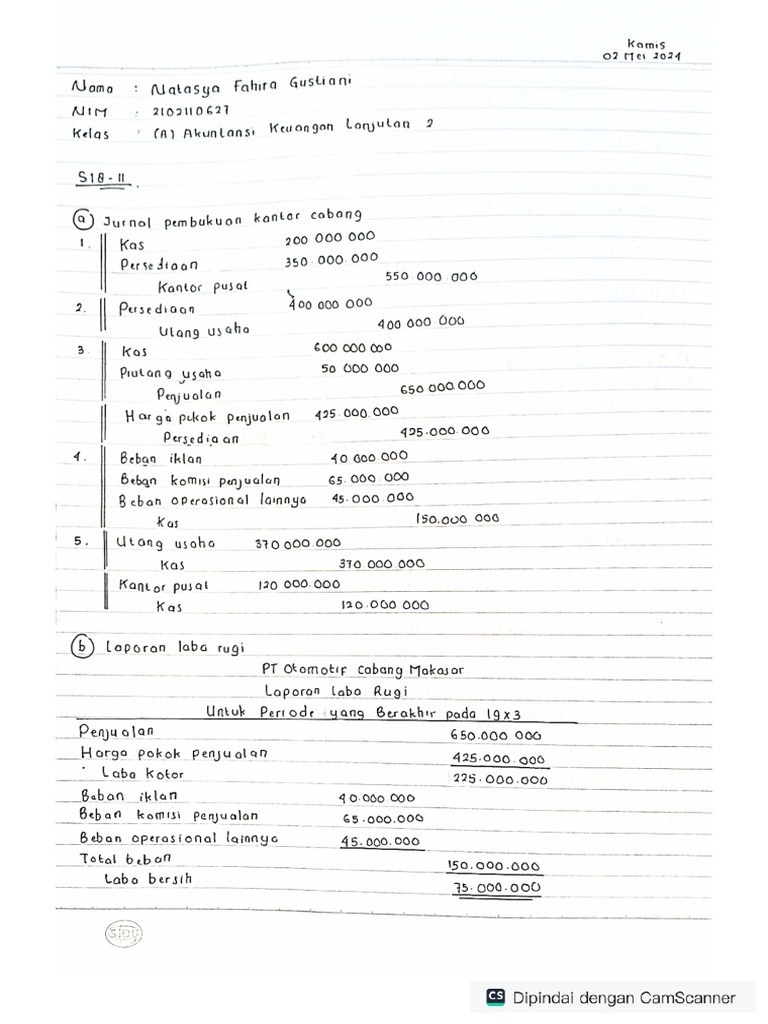 Kamis
02 Mei 2024
Nama : Natasya Fahira Gustiani
NIM : 2102110627
Kelas : (A) Akuntansi Keuangan Lanjutan 2
S18-11.
a Jurnal pembukuan kantor cabang
1. Kas 200 000 000
Persediaan 350.000.000
Kantor pusat 550 000.000
2. Persediaan 400 000 000
Utang usaha 400 000 000
3. Kas 600 000 000
Piutang usaha 50 000 000
Penjualan 650 000.000
Harga pokok penjualan 425.000.000
Persediaan 425.000.000
4. Beban iklan 40 000.000
Beban komisi penjualan 65.000.000
Beban operasional lainnya 45.000.000
Kas 150.000 000
5. Utang usaha 370 000.000
Kas 370 000.000
Kantor pusat 120 000.000
Kas 120.000 000
b Laporan laba rugi
PT Otomotif Cabang Makasar
Laporan Laba Rugi
Untuk Periode yang Berakhir pada 19x3
Penjualan 650.000.000
Harga pokok penjualan 425.000.000
Laba Kotor 225.000.000
Beban iklan 40.000 000
Beban komisi penjualan 65.000.000
Beban operasional lainnya 45.000.000
Total beban 150.000.000
Laba bersih 75.000.000
SIDU
CS Dipindai dengan CamScanner